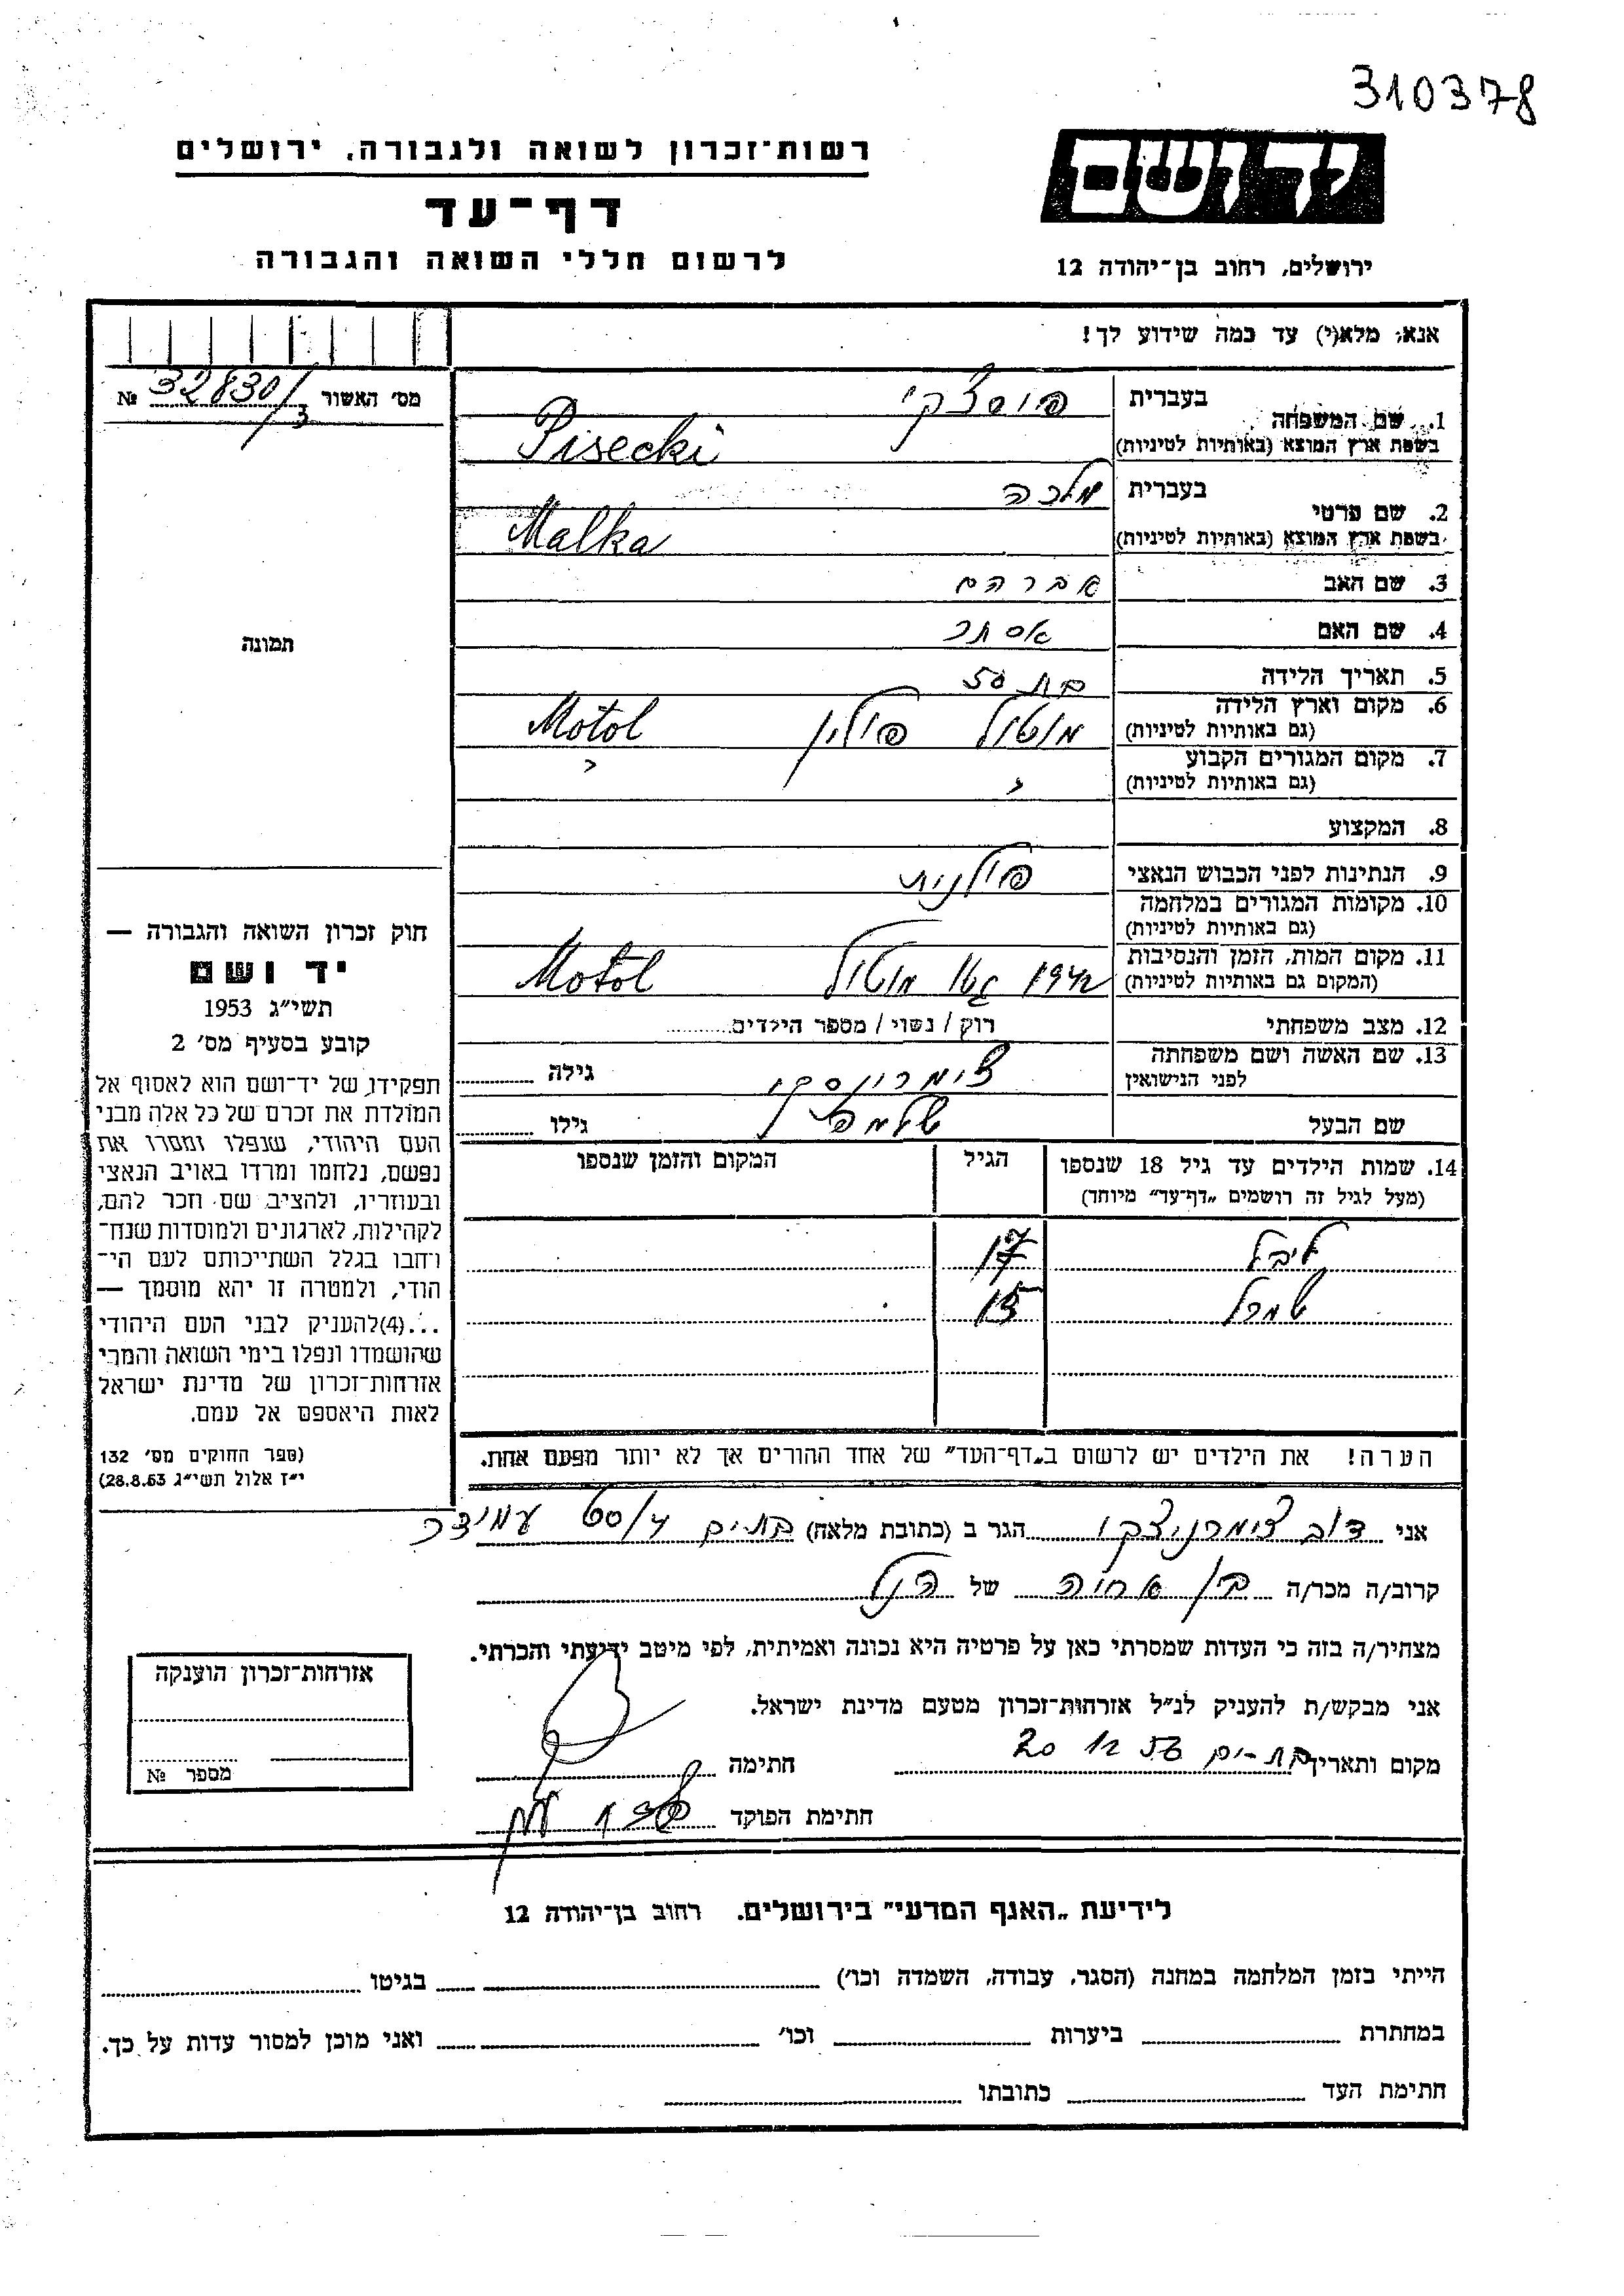 310378
יד ושם
רשות־זכרון לשואה ולגבורה, ירושלים
דף־עד
לרשום חללי השואה והגבורה
ירושלים, רחוב בן־יהודה 12
אנא, מלא(י) עד כמה שידוע לך!
מס' האשור 32830/3 №
תמונה
1. שם המשפחה בעברית פיסצקי
בשפת ארץ המוצא (באותיות לטיניות) Pisecki
2. שם פרטי בעברית מלכה
בשפת ארץ המוצא (באותיות לטיניות) Malka
3. שם האב אברהם
4. שם האם אסתר
5. תאריך הלידה בת 50
6. מקום וארץ הלידה מוטול פולין Motol
(גם באותיות לטיניות)
7. מקום המגורים הקבוע
(גם באותיות לטיניות)
8. המקצוע
9. הנתינות לפני הכבוש הנאצי פולנית
10. מקומות המגורים במלחמה
(גם באותיות לטיניות)
11. מקום המות, הזמן והנסיבות 1942 גטו מוטול Motol
(המקום גם באותיות לטיניות)
12. מצב משפחתי רוק / נשוי / מספר הילדים
13. שם האשה ושם משפחתה גילה
לפני הנישואין
שם הבעל גילו
14. שמות הילדים עד גיל 18 שנספו הגיל המקום והזמן שנספו
(מעל לגיל זה רושמים „דף־עד” מיוחד)
ליבל 17
15
הערה! את הילדים יש לרשום ב„דף־העד” של אחד ההורים אך לא יותר מפעם אחת.
חוק זכרון השואה והגבורה —
יד ושם
תשי״ג 1953
קובע בסעיף מס' 2
תפקידו של יד־ושם הוא לאסוף אל
המולדת את זכרם של כל אלה מבני
העם היהודי, שנפלו ומסרו את
נפשם, נלחמו ומרדו באויב הנאצי
ובעוזריו, ולהציב שם וזכר להם,
לקהילות, לארגונים ולמוסדות שנח־
רחבו בגלל השתייכותם לעם הי־
הודי, ולמטרה זו יהא מוסמך —
...(4)להעניק לבני העם היהודי
שהושמדו ונפלו בימי השואה והמרי
אזרחות־זכרון של מדינת ישראל
לאות היאספם אל עמם.
(ספר החוקים מס' 132
י״ז אלול תשי״ג 28.8.53)
אני דוב הגר ב (כתובת מלאה) בת־ים עמידר
קרוב/ה מכר/ה בן אחיה של הנ״ל
מצהיר/ה בזה כי העדות שמסרתי כאן על פרטיה היא נכונה ואמיתית, לפי מיטב ידיעתי והכרתי.
אני מבקש/ת להעניק לנ״ל אזרחות־זכרון מטעם מדינת ישראל.
מקום ותאריך בת־ים 20 12 56 חתימה
חתימת הפוקד
אזרחות־זכרון הוענקה
מספר №
לידיעת „האגף המדעי” בירושלים. רחוב בן־יהודה 12
הייתי בזמן המלחמה במחנה (הסגר, עבודה, השמדה וכו') בגיטו
במחתרת ביערות וכו' ואני מוכן למסור עדות על כך.
חתימת העד כתובתו